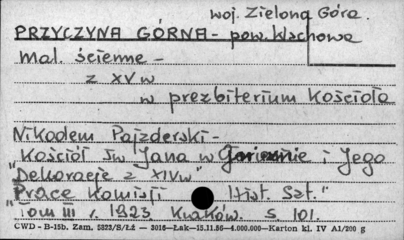 woj. Zielona Góra.
PRZYCZYNA GÓRNA - pow. Wschowa
Mal. ścienne -
z XV w
w prezbiterium Kościoła
Nikodem Pajzderski -
"Kościół św Jana w i Jego
Dekoracje z XIVw"
"Prace Komisji Hist. Szt."
Tom III r. 1923 Kraków. S 101.
CWD - B-15b. Zam. 5823/S/Łź — 3016—Łąk—15.11.56—4.000.000—Karton kl. IV A1/200 g